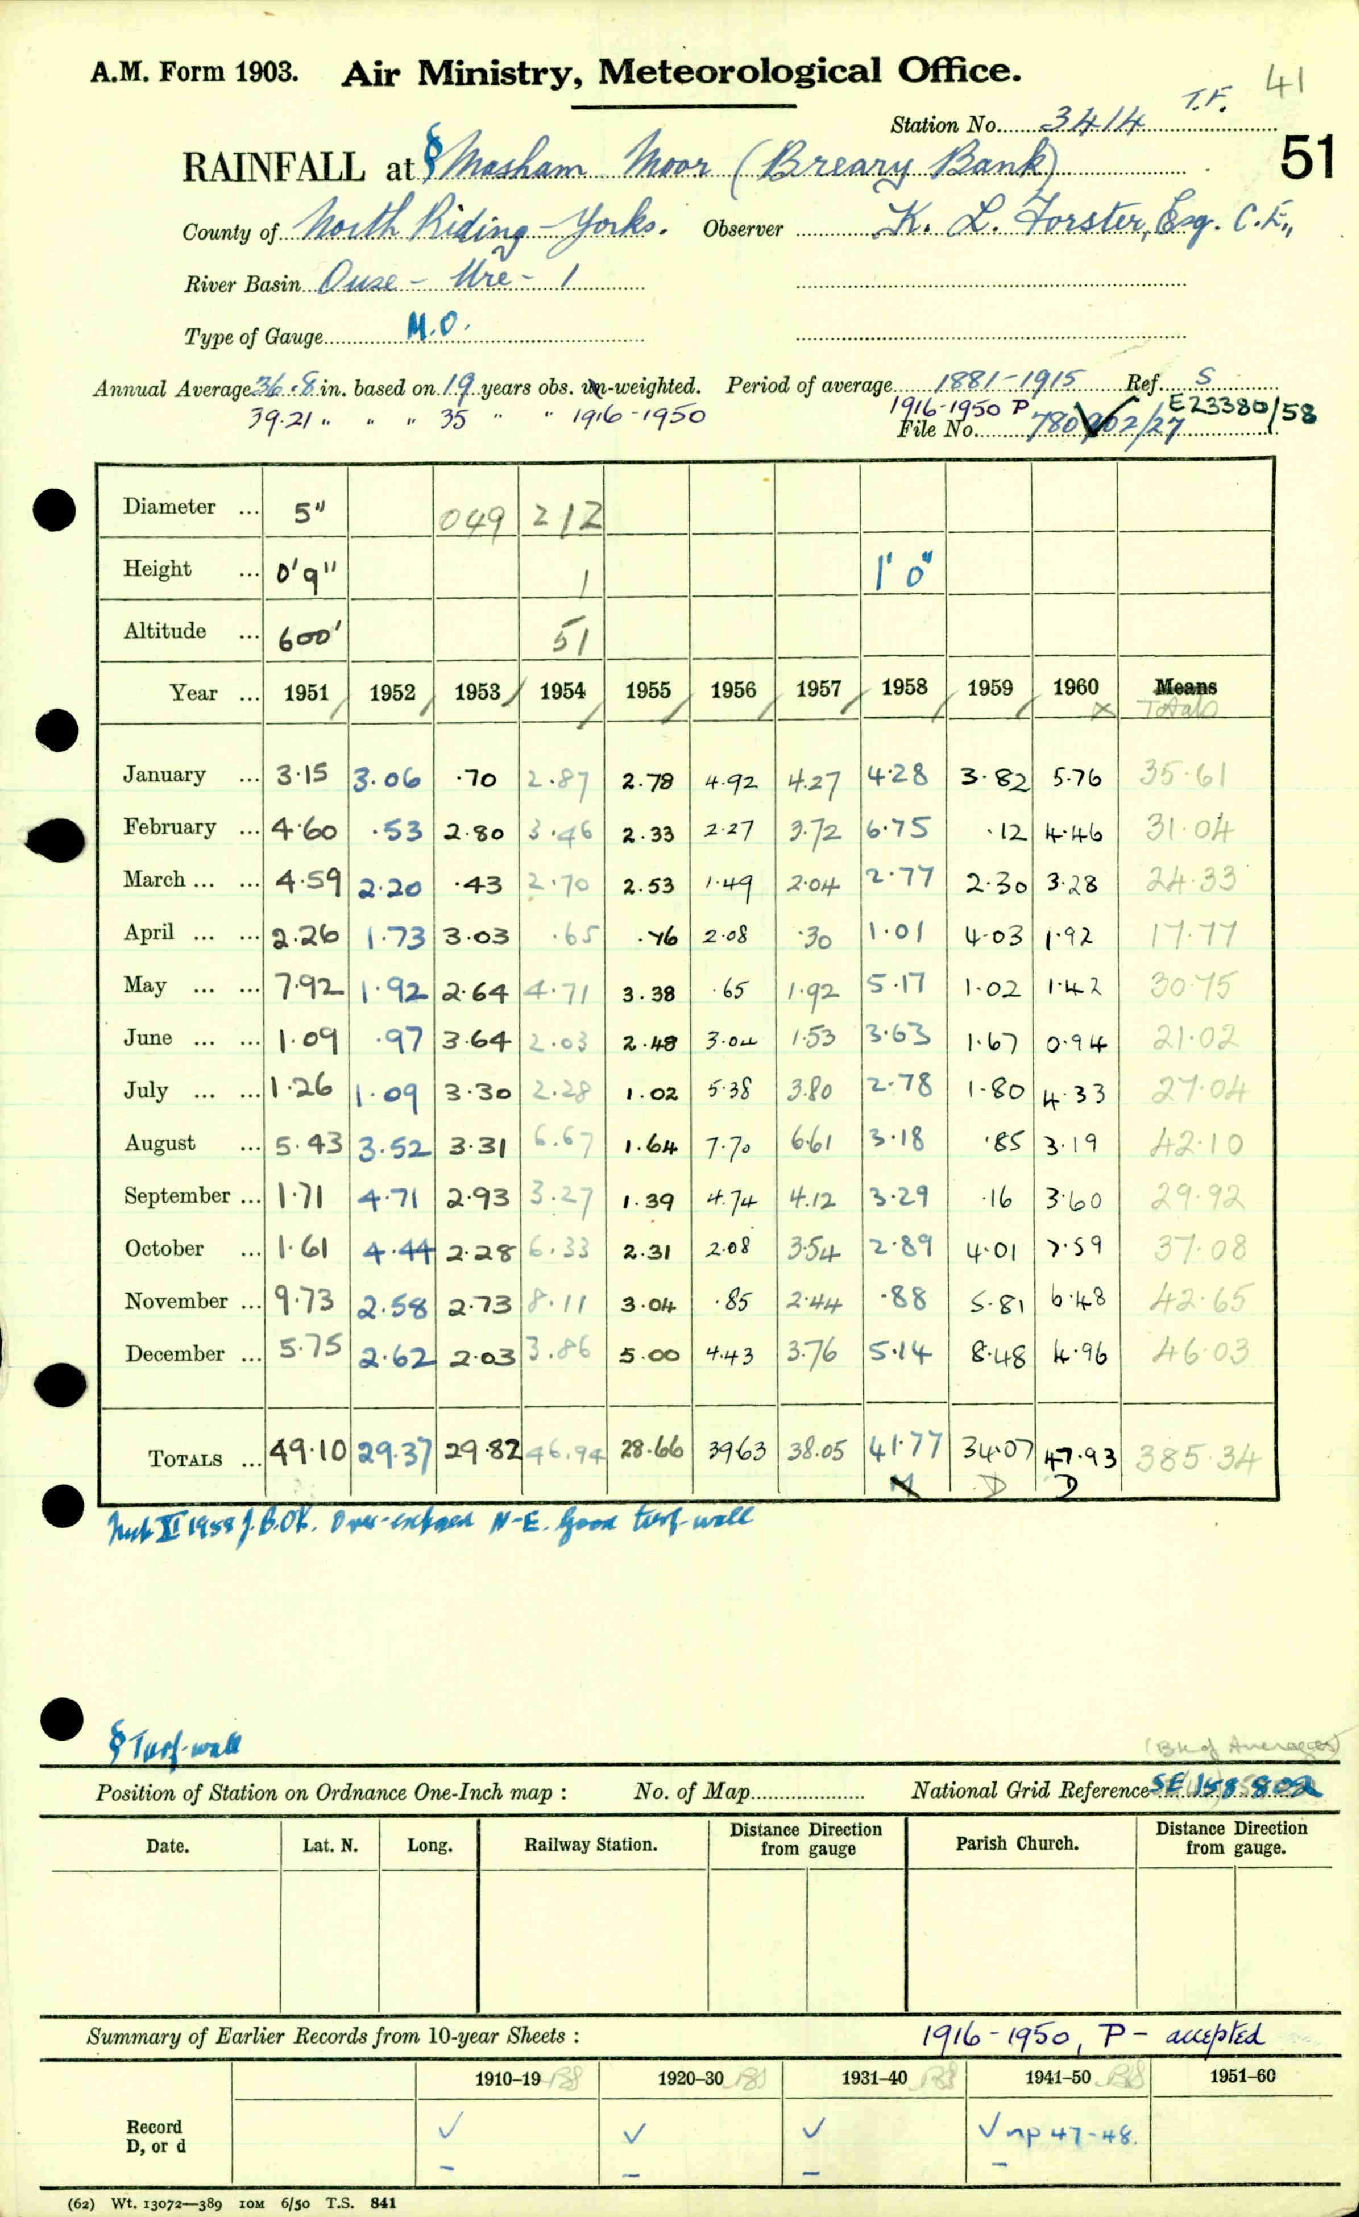 A.M. Form 1903. Air Ministry, Meteorological Office. 41
T.F.
Station No. 3414
51
RAINFALL at § Masham Moor (Breary Bank)
County of North Riding - Yorks. Observer K. L. Forster, Esq. C.E.,
River Basin Ouse - Ure - 1
Type of Gauge M.O.
Annual Average 36.8 in. based on 19 years obs. un-weighted. Period of average 1881-1915 Ref. S
39.21 " " " 35 " " 1916-1950 1916-1950 P E23380/58
File No. 780902/27
Diameter ... 5" 049 212
Height ... 0'9" 1 1' 0"
Altitude ... 600' 51
Year ... 1951 1952 1953 1954 1955 1956 1957 1958 1959 1960 Means
Totals
January ... 3.15 3.06 .70 2.87 2.78 4.92 4.27 4.28 3.82 5.76 35.61
February ... 4.60 .53 2.80 3.46 2.33 2.27 3.72 6.75 .12 4.46 31.04
March ... ... 4.59 2.20 .43 2.70 2.53 1.49 2.04 2.77 2.30 3.28 24.33
April ... ... 2.26 1.73 3.03 .65 .76 2.08 .30 1.01 4.03 1.92 17.77
May ... ... 7.92 1.92 2.64 4.71 3.38 .65 1.92 5.17 1.02 1.42 30.75
June ... ... 1.09 .97 3.64 2.03 2.48 3.04 1.53 3.63 1.67 0.94 21.02
July ... ... 1.26 1.09 3.30 2.28 1.02 5.38 3.80 2.78 1.80 4.33 27.04
August ... 5.43 3.52 3.31 6.67 1.64 7.70 6.61 3.18 .85 3.19 42.10
September ... 1.71 4.71 2.93 3.27 1.39 4.74 4.12 3.29 .16 3.60 29.92
October ... 1.61 4.44 2.28 6.33 2.31 2.08 3.54 2.89 4.01 7.59 37.08
November ... 9.73 2.58 2.73 8.11 3.04 .85 2.44 .88 5.81 6.48 42.65
December ... 5.75 2.62 2.03 3.86 5.00 4.43 3.76 5.14 8.48 4.96 46.03
TOTALS ... 49.10 29.37 29.82 46.94 28.66 39.63 38.05 41.77 34.07 47.93 385.34
D D
XI 1958 J.B. OK. Over-exposed N-E. Good turf-wall
§ Turf-wall
(Bk of Averages)
Position of Station on Ordnance One-Inch map : No. of Map National Grid Reference SE 158 802
Date. Lat. N. Long. Railway Station. Distance from Direction gauge Parish Church. Distance from Direction gauge.
Summary of Earlier Records from 10-year Sheets : 1916-1950, P - accepted
1910-19 1920-30 1931-40 1941-50 1951-60
Record
D, or d
✓ ✓ ✓ ✓ np 47-48.
– – – –
(62) Wt. 13072—389 10M 6/50 T.S. 841